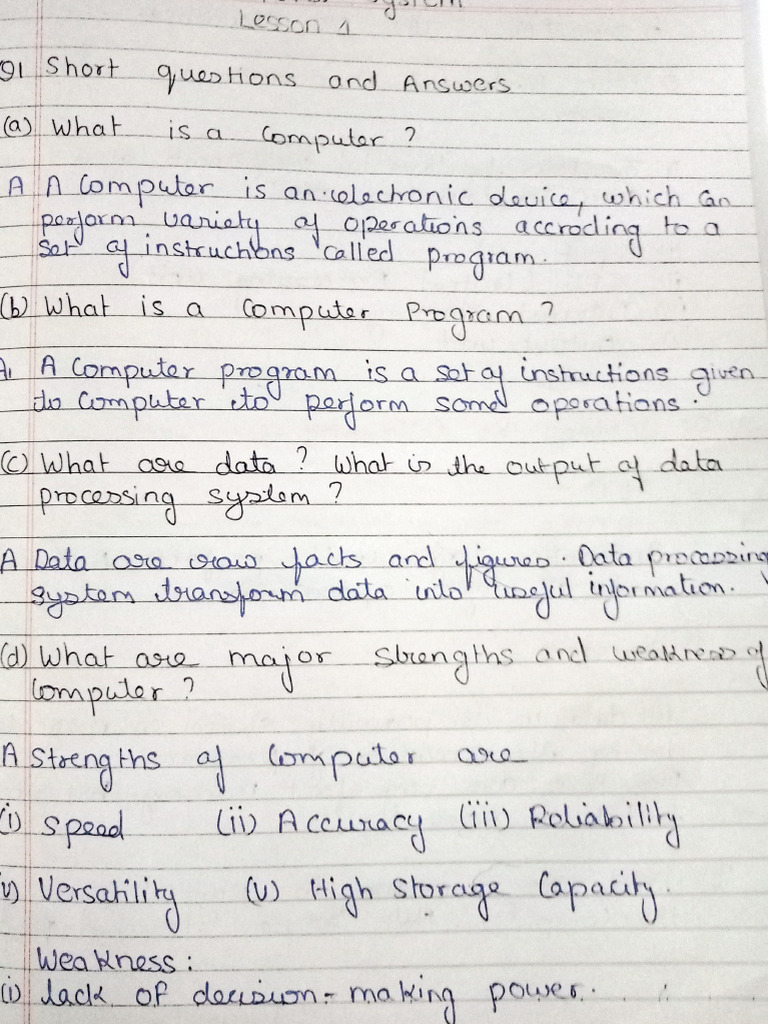 Lesson 1
Q1 Short questions and Answers
(a) What is a Computer ?
A A Computer is an electronic device, which can
perform variety of operations accroding to a
set of instructions called program.
(b) What is a Computer Program ?
A. A Computer program is a set of instructions given
to Computer to perform some operations.
(c) What are data ? What is the output of data
processing system ?
A Data are raw facts and figures. Data processing
system transform data into useful information.
(d) What are major strengths and weakness of
Computer ?
A Strengths of Computer are
(i) Speed (ii) Accuracy (iii) Reliability
v) Versatility (v) High Storage Capacity.
Weakness :
(i) lack of decision-making power.